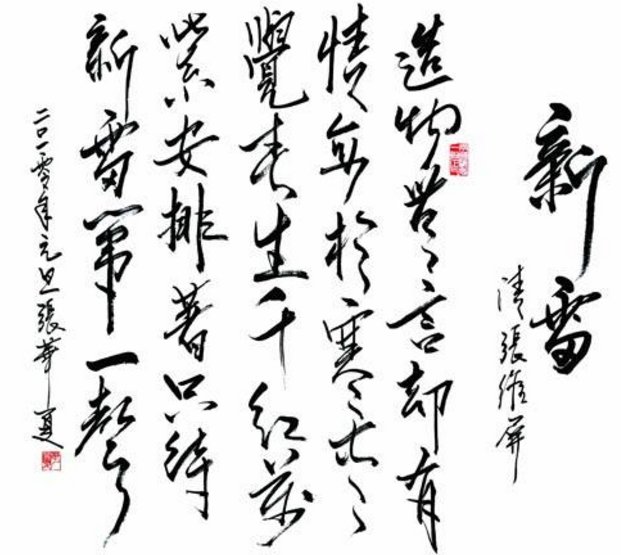 新雷
清張維屏
造物無言却有
情每於寒盡
覺春生千紅萬
紫安排著只待
新雷第一聲
二〇一零年元旦張華夏